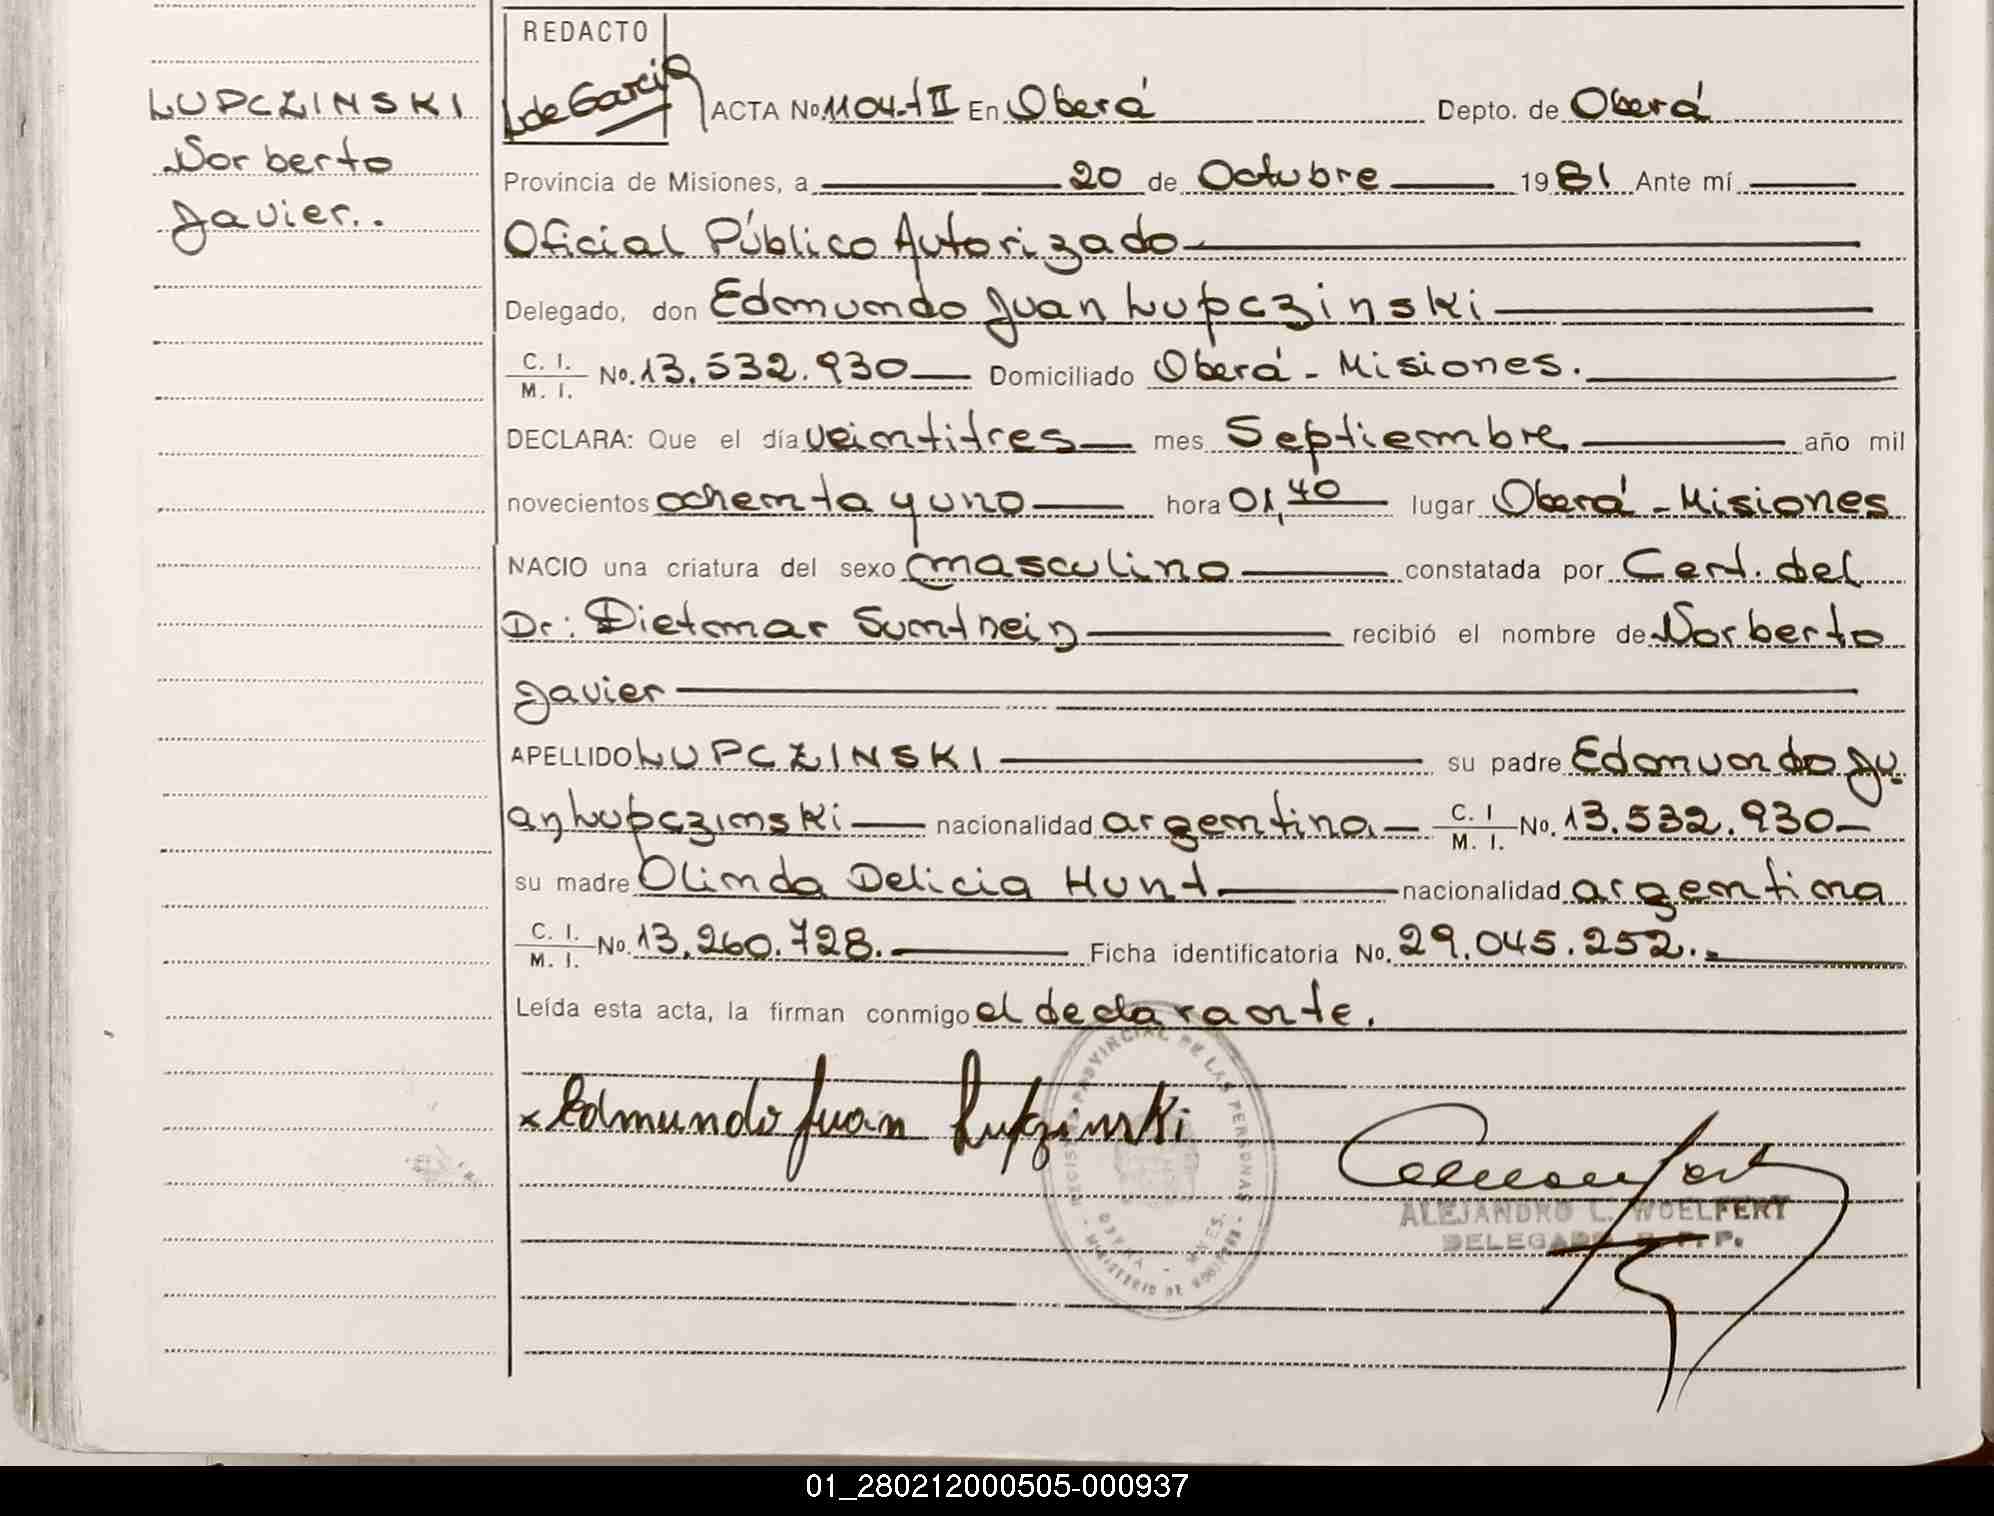 REDACTO
L de Garcia
LUPCZINSKI
Norberto
Javier..
ACTA No. 1104-t II En Oberá Depto. de Oberá
Provincia de Misiones, a 20 de Octubre 1981 Ante mí
Oficial Público Autorizado
Delegado, don Edmundo Juan Lupczinski
C. I. / M. I. No. 13.532.930 Domiciliado Oberá - Misiones.
DECLARA: Que el día veintitres mes Septiembre año mil
novecientos ochenta y uno hora 01,40 lugar Oberá - Misiones
NACIO una criatura del sexo masculino constatada por Cert. del
Dr: Dietmar recibió el nombre de Norberto
Javier
APELLIDO LUPCZINSKI su padre Edmundo Ju
an Lupczinski nacionalidad argentina C. I / M. I. No. 13.532.930
su madre Olinda Delicia Hunt nacionalidad argentina
C. I. / M. I. No. 13.260.728. Ficha identificatoria No. 29.045.252.
Leída esta acta, la firman conmigo el declarante.
x Edmundo Juan Lupzinski
REGISTRO PROVINCIAL DE LAS PERSONAS
OBERA - MNES.
MINISTERIO DE GOBIERNO
ALEJANDRO L. WOELFERT
DELEGADO R. P. P.
01_280212000505-000937